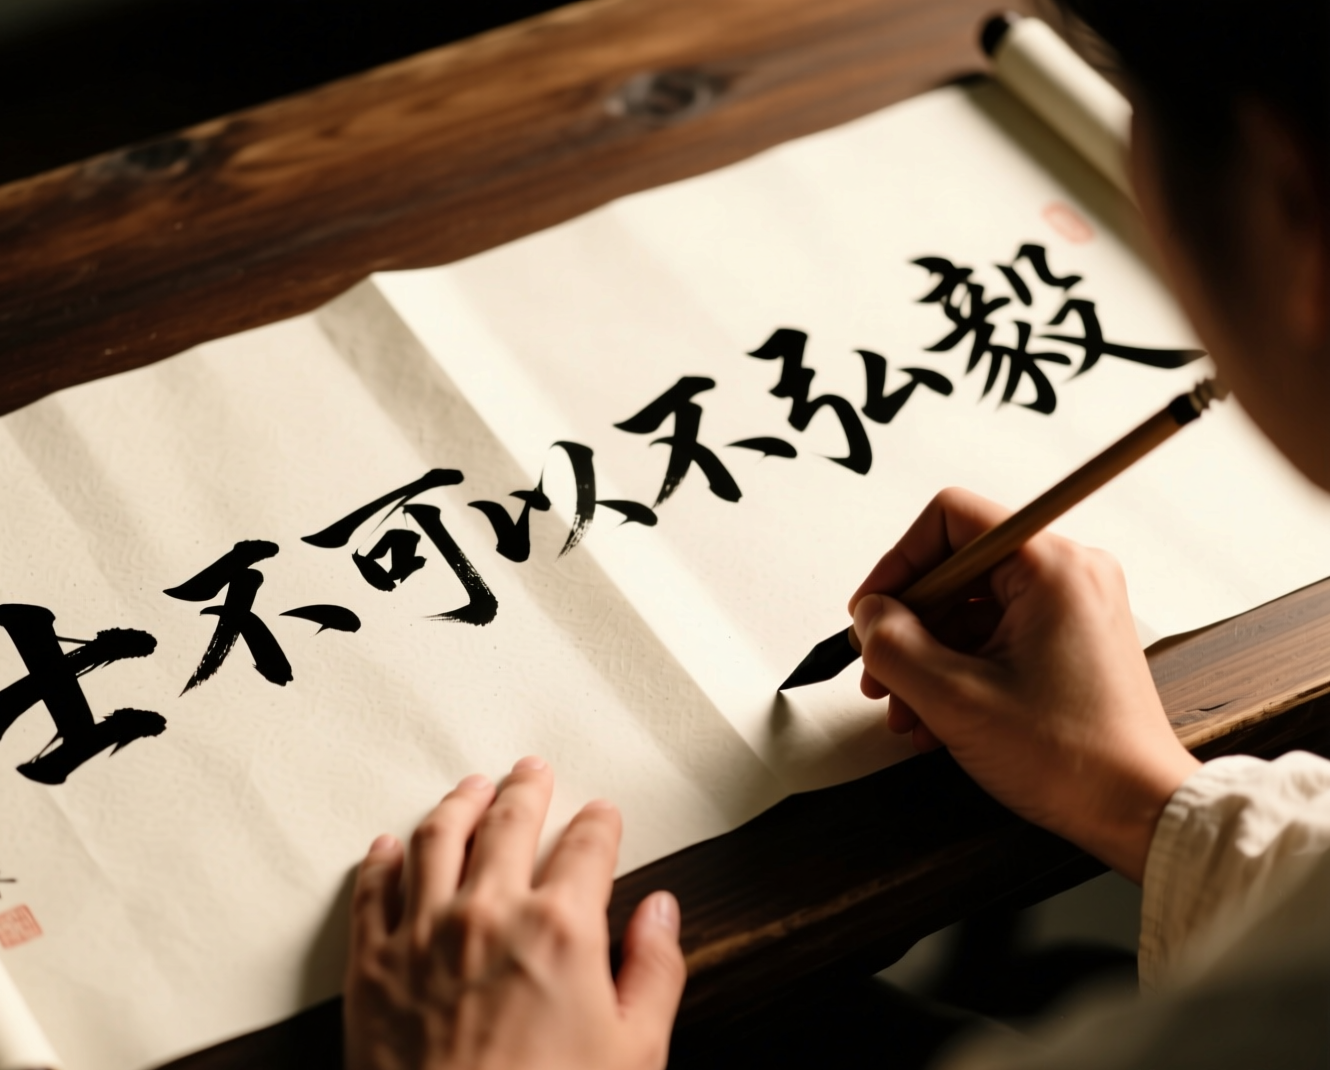 士不可以不弘毅